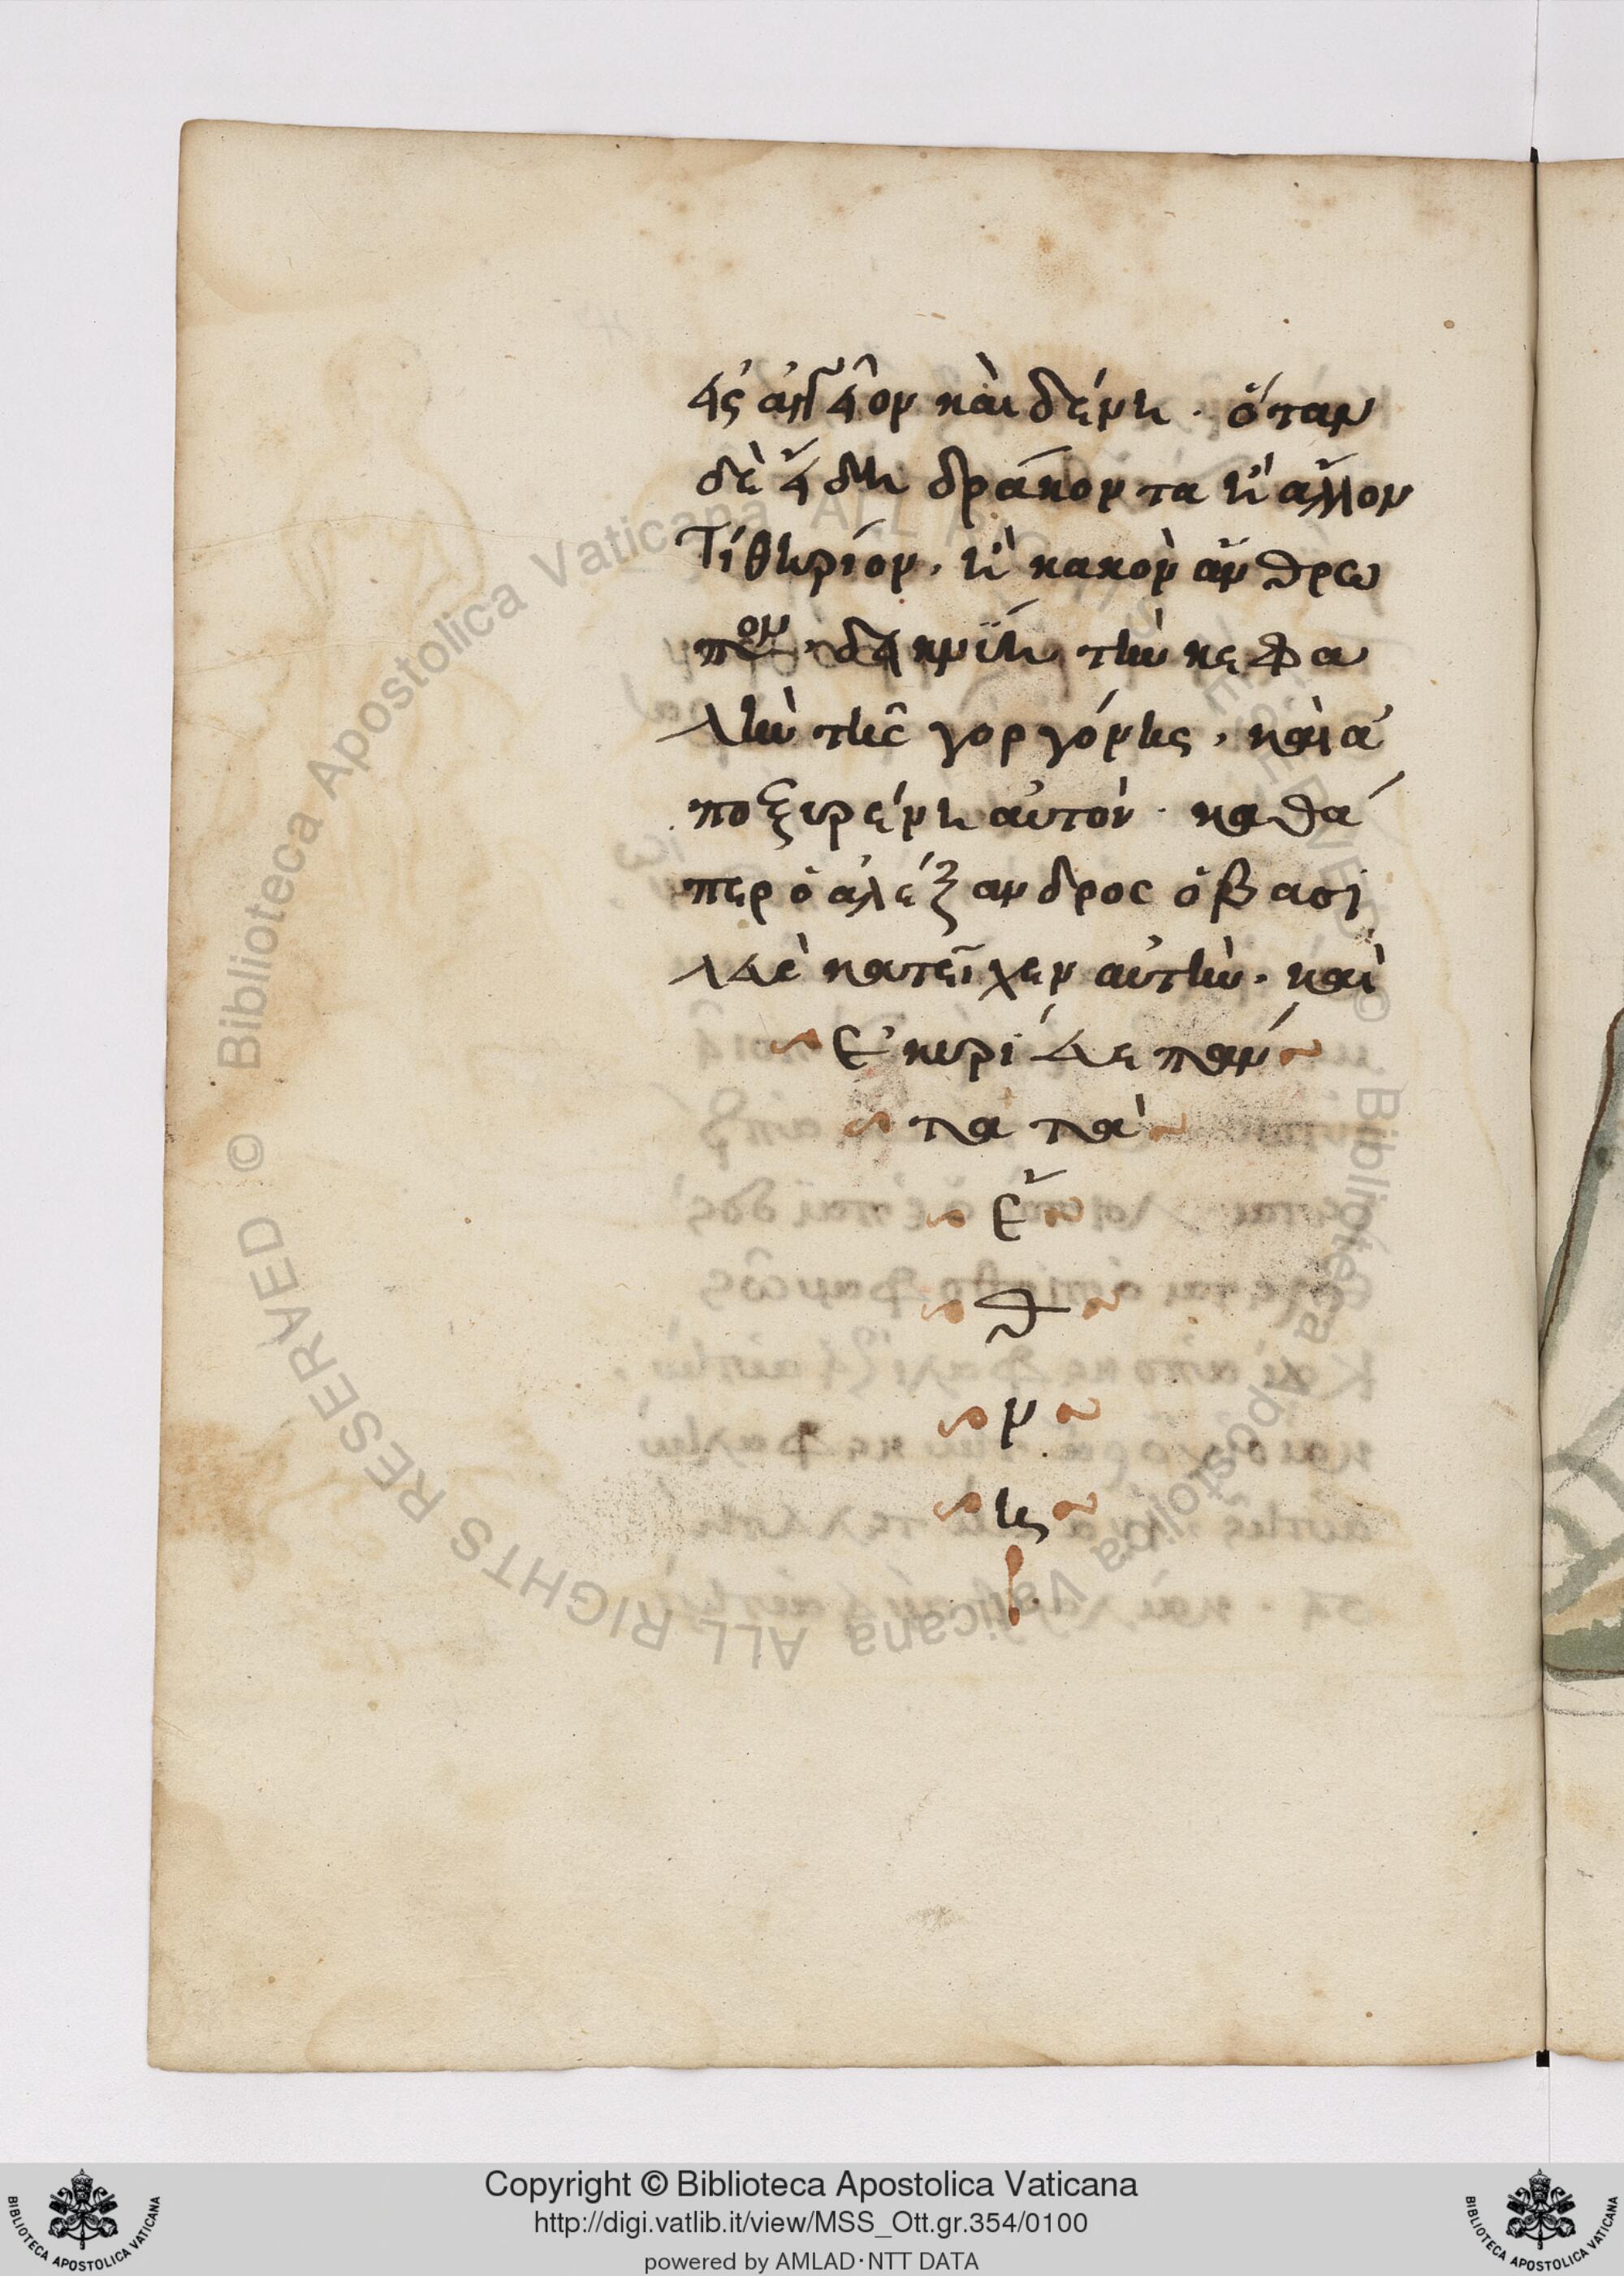 εἰς ἀγγεῖον καὶ δένη. ὅταν
δὲ εἴδη δράκοντα ἢ ἄλλον
τί θηρίον, ἢ κακὸν ἄνθρω
πον, δεικνύη τὴν κεφα
λὴν τῆς γοργόνης, καὶ ἀ
ποξυρένη αὐτὸν. καθά
περ ὁ ἀλέξανδρος ὁ βασι
λεὺς κατεῖχεν αὐτὴν. καὶ
ἐκυρίευε πάν
τα τὰ
ἔ
θ
ν
ης
Copyright © Biblioteca Apostolica Vaticana
http://digi.vatlib.it/view/MSS_Ott.gr.354/0100
powered by AMLAD·NTT DATA
BIBLIOTECA APOSTOLICA VATICANA
BIBLIOTECA APOSTOLICA VATICANA
© Biblioteca Apostolica Vaticana ALL RIGHTS RESERVED
© Biblioteca Apostolica Vaticana ALL RIGHTS RESERVED